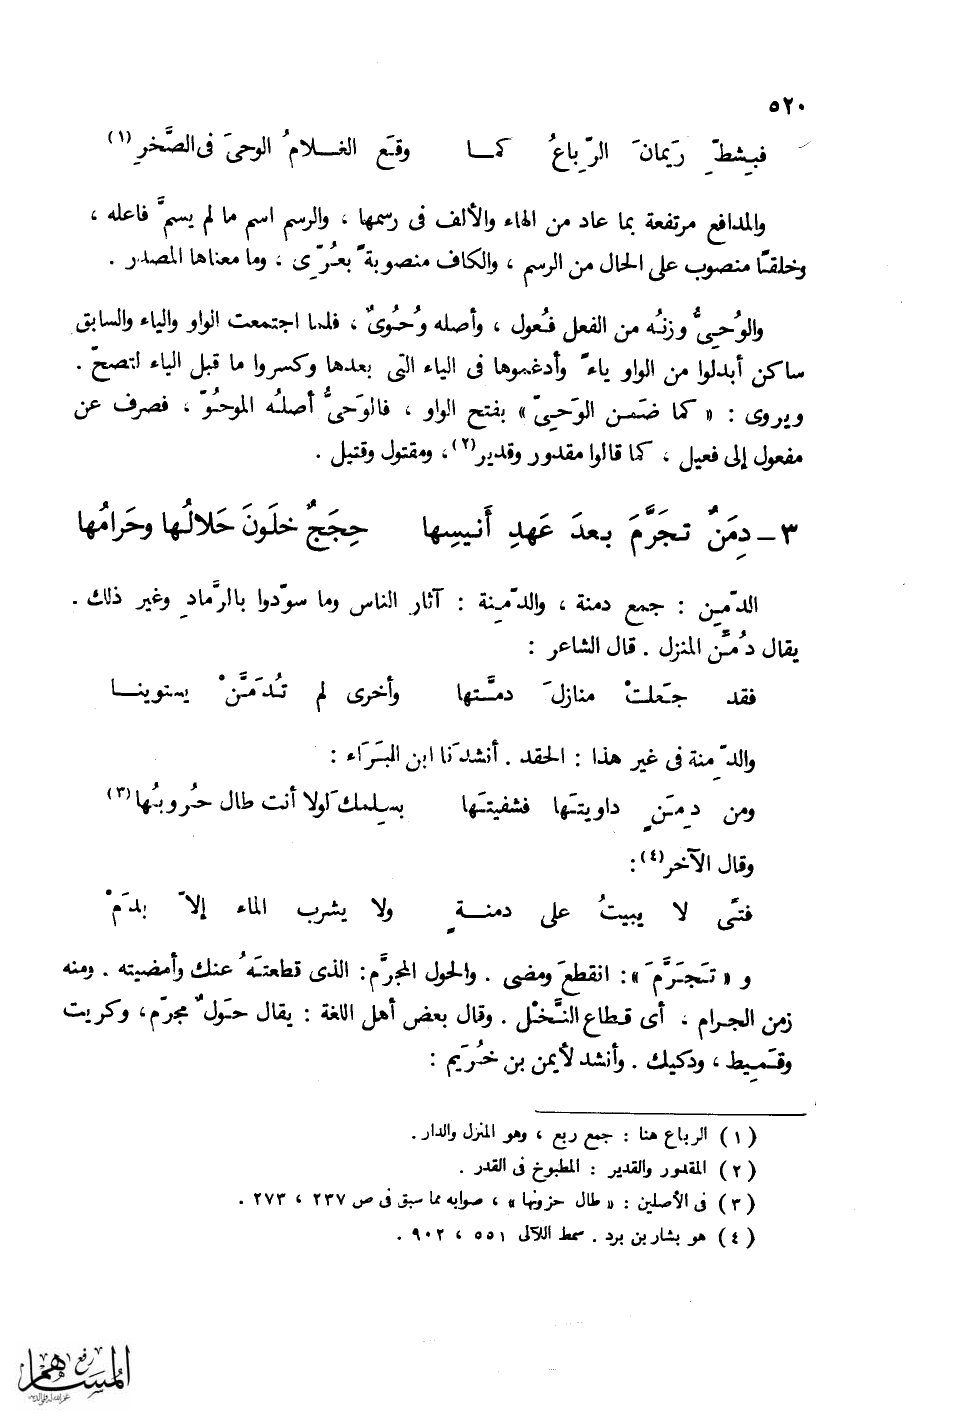 ٥٢٠
فبِشطِّ رَيمانَ الرِّباعُ كمـا وقَع الغـلامُ الوحىَ فى الصَّخرِ(١)
والمدافع مرتفعة بما عاد من الهاء والألف فى رسمها ، والرسم اسم ما لم يسمَّ فاعله ،
وخلَقًا منصوب على الحال من الرسم ، والكاف منصوبةٌ بعُرِّى ، وما معناها المصدر .
والوُحِىُّ وزنُه من الفعل فُعول ، وأصله وُحُوىٌ ، فلما اجتمعت الواو والياء والسابق
ساكن أبدلوا من الواو ياءً وأدغموها فى الياء التى بعدها وكسروا ما قبل الياء لتصحّ .
ويروى : « كما ضَمن الوَحِىّ » بفتح الواو ، فالوَحىُّ أصلُه الموحُوّ ، فصرف عن
مفعول إلى فعيل ، كما قالوا مقدور وقدير(٢)، ومقتول وقتيل .
٣ – دِمَنٌ تجَرَّمَ بعدَ عَهدِ أَنيسِها حِجَجٌ خلَونَ حَلالُها وحَرامُها
الدِّمَن : جمع دمنة ، والدِّمنة : آثار الناس وما سوّدوا بالرَّمادِ وغير ذلك .
يقال دُمِّنَ المنزل . قال الشاعر :
فقد جَعلتْ منازلَ دمَّتها وأخرى لم تُدَمَّنْ يستوينـا
والدِّمنة فى غير هذا : الحقد . أنشدَنا ابن البَرَاء :
ومن دِمَنٍ داويتَها فشفيتَها بسِلمك لولا أنت طال حُروبُها(٣)
وقال الآخر(٤):
فتًى لا يبيتُ على دمنـةٍ ولا يشرب الماء إلاّ بدَمْ
و « تَجَرَّمَ »: انقطعَ ومضى . والحول المجرَّم: الذى قطعتَهُ عنك وأمضيته . ومنه
زمن الجرام ، أى قطاع النَّخْل . وقال بعض أهل اللغة : يقال حَولٌ مجرّم، وكريت
وقَمِيط ، ودكيك . وأنشد لأيمن بن خُرَيم :
(١) الرباع هنا : جمع ربع ، وهو المنزل والدار .
(٢) المقدور والقدير : المطبوخ فى القدر .
(٣) فى الأصلين : « طال حزونها » ، صوابه مما سبق فى ص ٢٣٧ ، ٢٧٣ .
(٤) هو بشار بن برد . سمط اللآلى ٥٥١ ، ٩٠٢ .